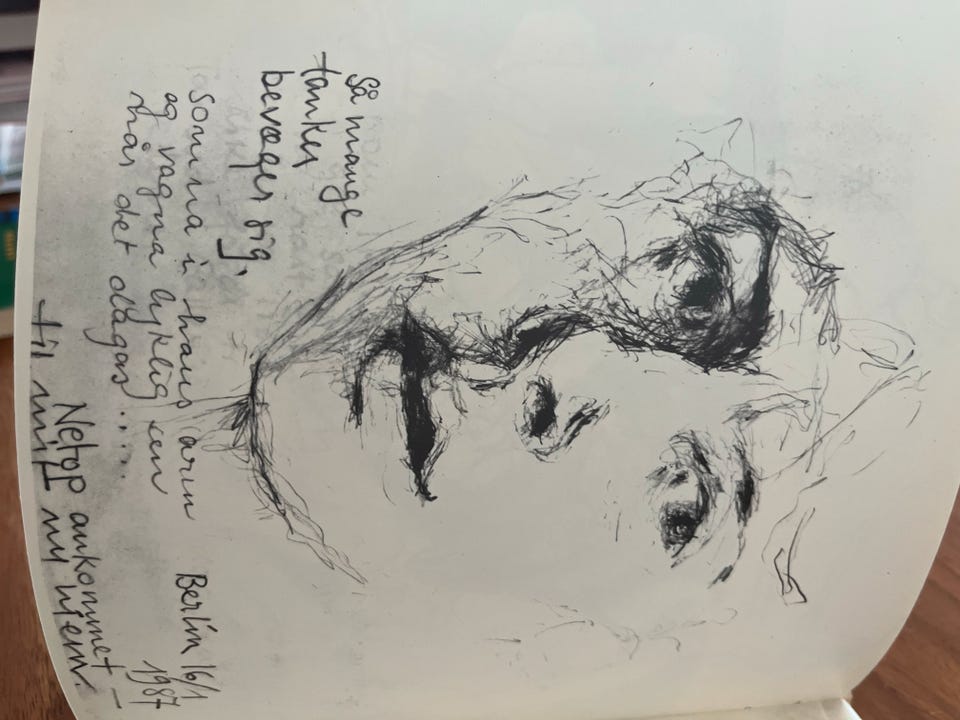 Så mange
tanker
bevæger sig,
somna i hans arm
og vagna lyklig sen
når det dagas.....
Berlin 16/1
1987
Netop ankommet –
til mit ny hjem.